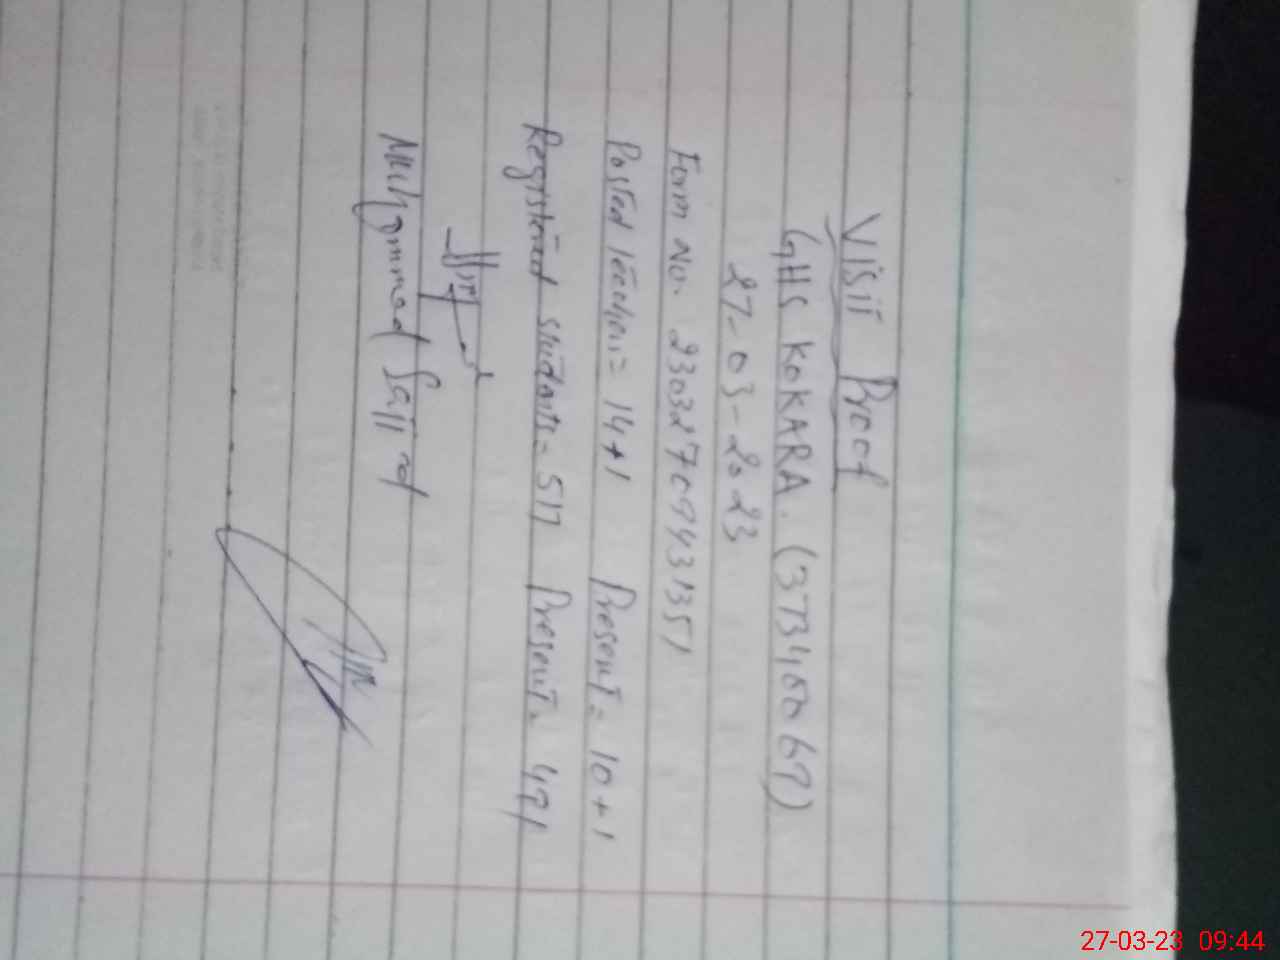 Visit Proof
GHS KOKARA. (37340069)
27-03-2023
Form No. 23032709431351
Posted teacher = 14+1 Present = 10+1
Registered students = 517 Present = 491
Muhammad Sajjad
27-03-23 09:44